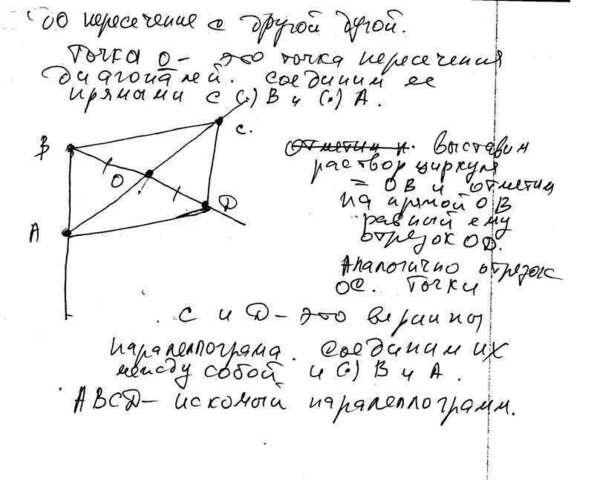 до пересечение с другой дугой.
Точка O - это точка пересечения
диагоналей. соединим ее
прямыми с (.) B и (.) A.
B
C.
O
D
A
отметим н. выставим
раствор циркуля
= OB и отметим
на прямой OB
равный ему
отрезок OD.
Аналогично отрезок
OC. Точки
C и D - это вершины
паралеллограма. соединим их
между собой и (.) B и A.
ABCD - искомый паралеллограмм.